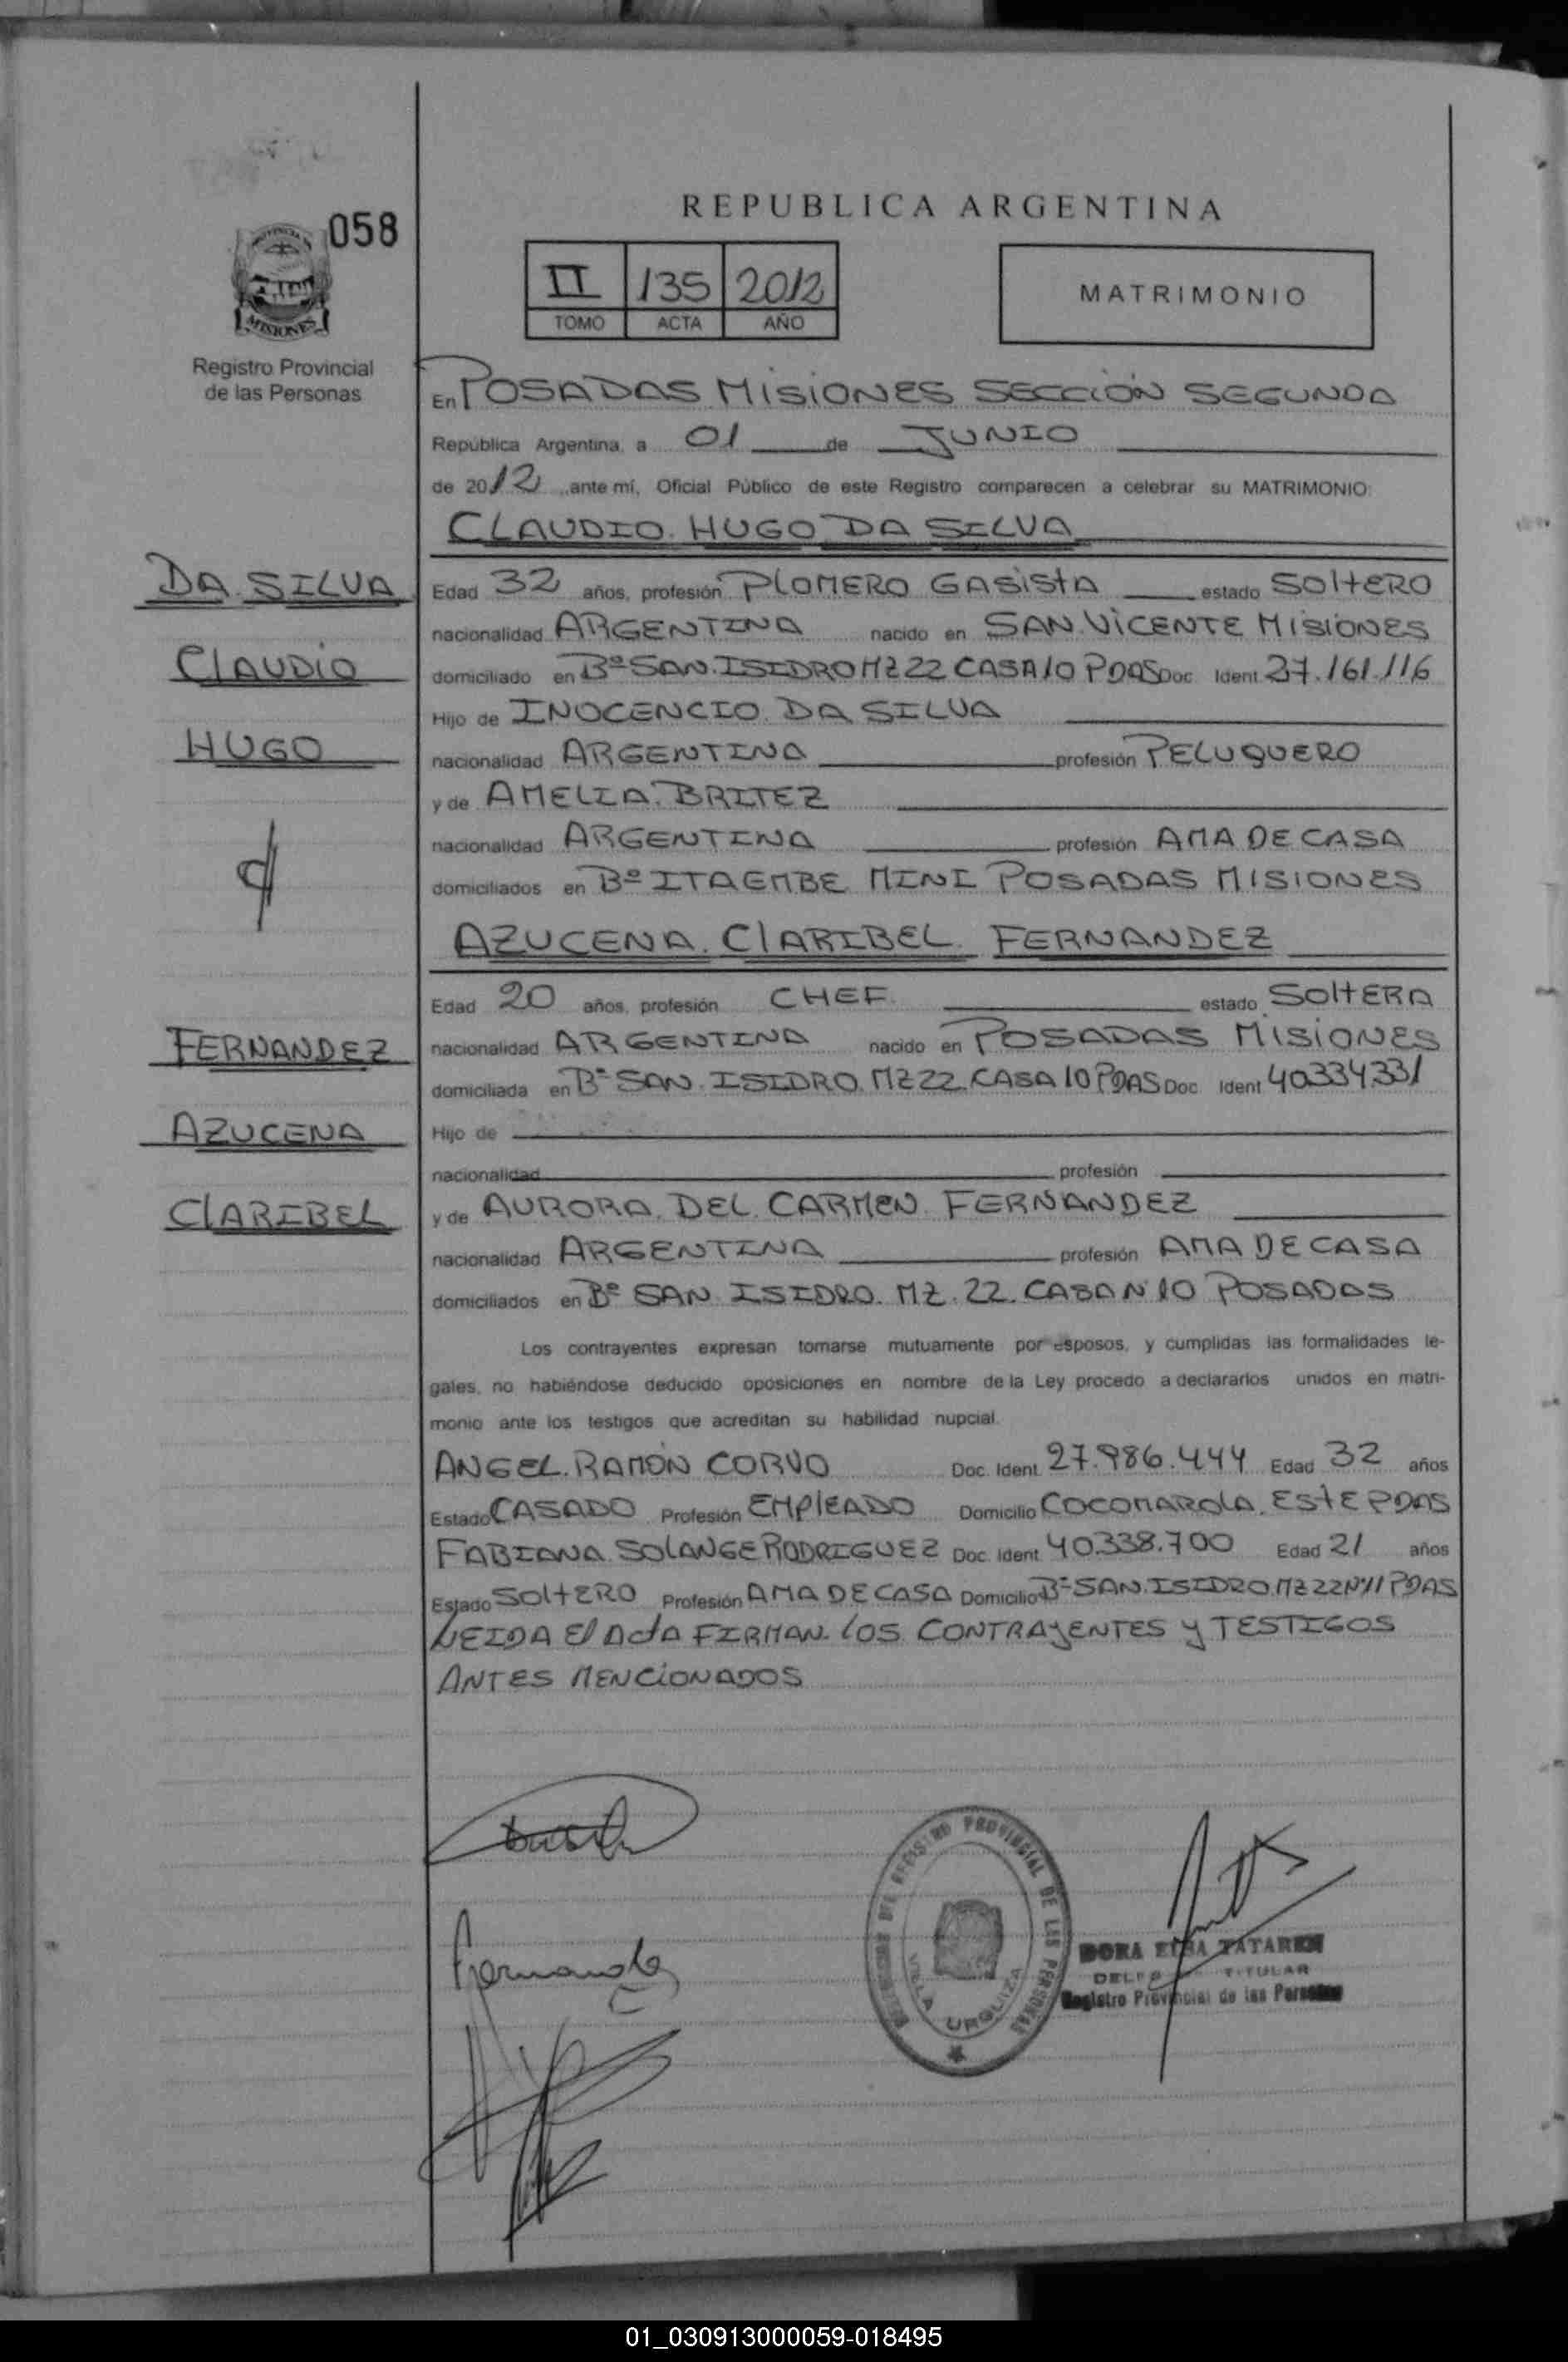 058
REPUBLICA ARGENTINA
II 135 2012
TOMO ACTA AÑO
MATRIMONIO
MISIONES
Registro Provincial
de las Personas
En POSADAS MISIONES SECCIÓN SEGUNDA
República Argentina, a 01 de JUNIO
de 2012, ante mí, Oficial Público de este Registro comparecen a celebrar su MATRIMONIO:
CLAUDIO HUGO DA SILVA
DA SILVA
Edad 32 años, profesión PLOMERO GASISTA estado SOLTERO
nacionalidad ARGENTINA nacido en SAN VICENTE MISIONES
CLAUDIO
domiciliado en Bº SAN ISIDRO MZ 22 CASA 10 PDAS Doc. Ident. 27.161.116
Hijo de INOCENCIO DA SILVA
HUGO
nacionalidad ARGENTINA profesión PELUQUERO
y de AMELIA BRITEZ
nacionalidad ARGENTINA profesión AMA DE CASA
domiciliados en Bº ITAEMBE MINI POSADAS MISIONES
AZUCENA CLARIBEL FERNANDEZ
Edad 20 años, profesión CHEF estado SOLTERA
FERNANDEZ
nacionalidad ARGENTINA nacido en POSADAS MISIONES
domiciliada en Bº SAN ISIDRO MZ 22 CASA 10 PDAS Doc. Ident. 40334331
AZUCENA
Hijo de
nacionalidad profesión
CLARIBEL
y de AURORA DEL CARMEN FERNANDEZ
nacionalidad ARGENTINA profesión AMA DE CASA
domiciliados en Bº SAN ISIDRO MZ. 22 CASA N 10 POSADAS
Los contrayentes expresan tomarse mutuamente por esposos, y cumplidas las formalidades le-
gales, no habiéndose deducido oposiciones en nombre de la Ley procedo a declararlos unidos en matri-
monio ante los testigos que acreditan su habilidad nupcial.
ANGEL RAMÓN CORVO Doc. Ident. 27.986.444 Edad 32 años
Estado CASADO Profesión EMPLEADO Domicilio COCOMAROLA ESTE PDAS
FABIANA SOLANGE RODRIGUEZ Doc. Ident. 40.338.700 Edad 21 años
Estado SOLTERO Profesión AMA DE CASA Domicilio Bº SAN ISIDRO MZ 22 Nº 11 PDAS
LEIDA El ActA FIRMAN LOS CONTRAYENTES y TESTIGOS
ANTES MENCIONADOS
Fernandez
REGISTRO PROVINCIAL DE LAS PERSONAS
VILLA URQUIZA
DORA ELBA TATAREN
TITULAR
Registro Provincial de las Personas
01_030913000059-018495